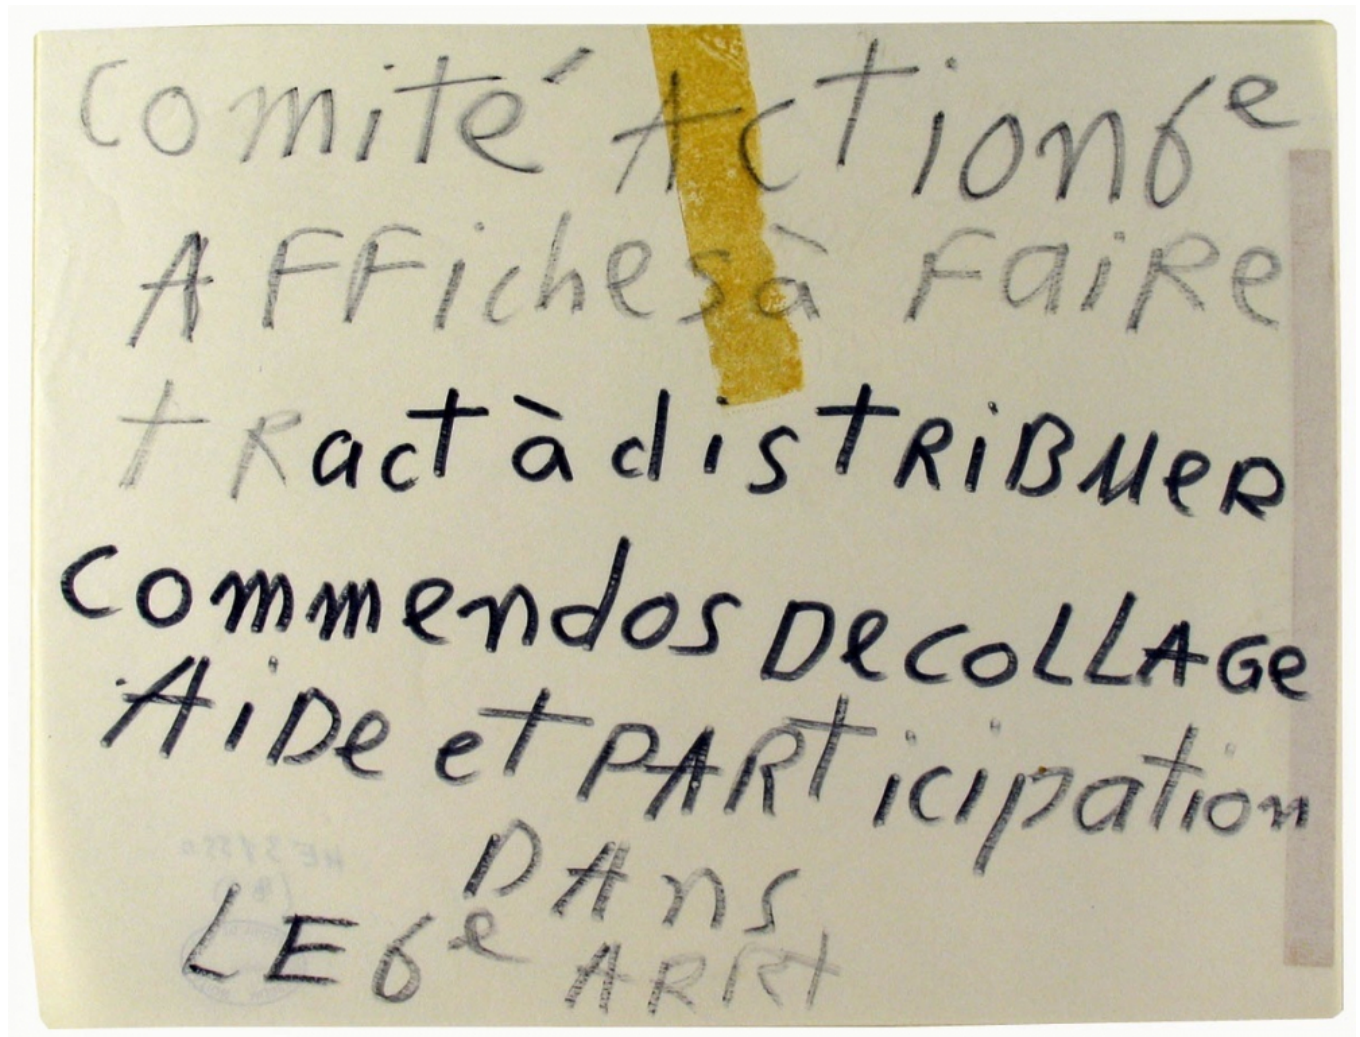 Comité Action 6e
AFFiches à FaiRe
tRact à distRiBueR
commendos De coLLAGe
AiDe et PARticipation
DAns
LE 6e ARRt